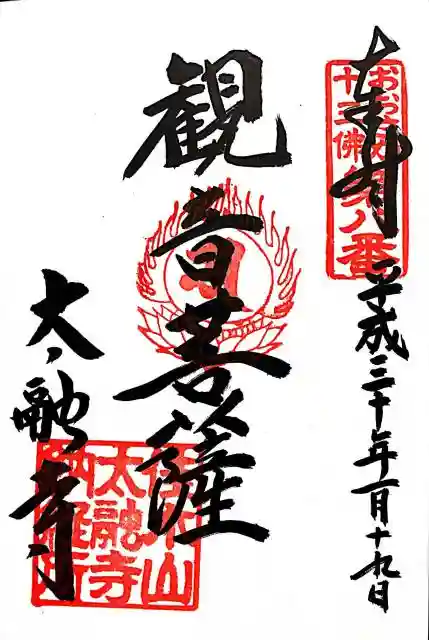 奉拝
おおさか
十三佛第八番
平成三十年一月十九日
観音菩薩
太融寺
佳木山
太融寺
納経所